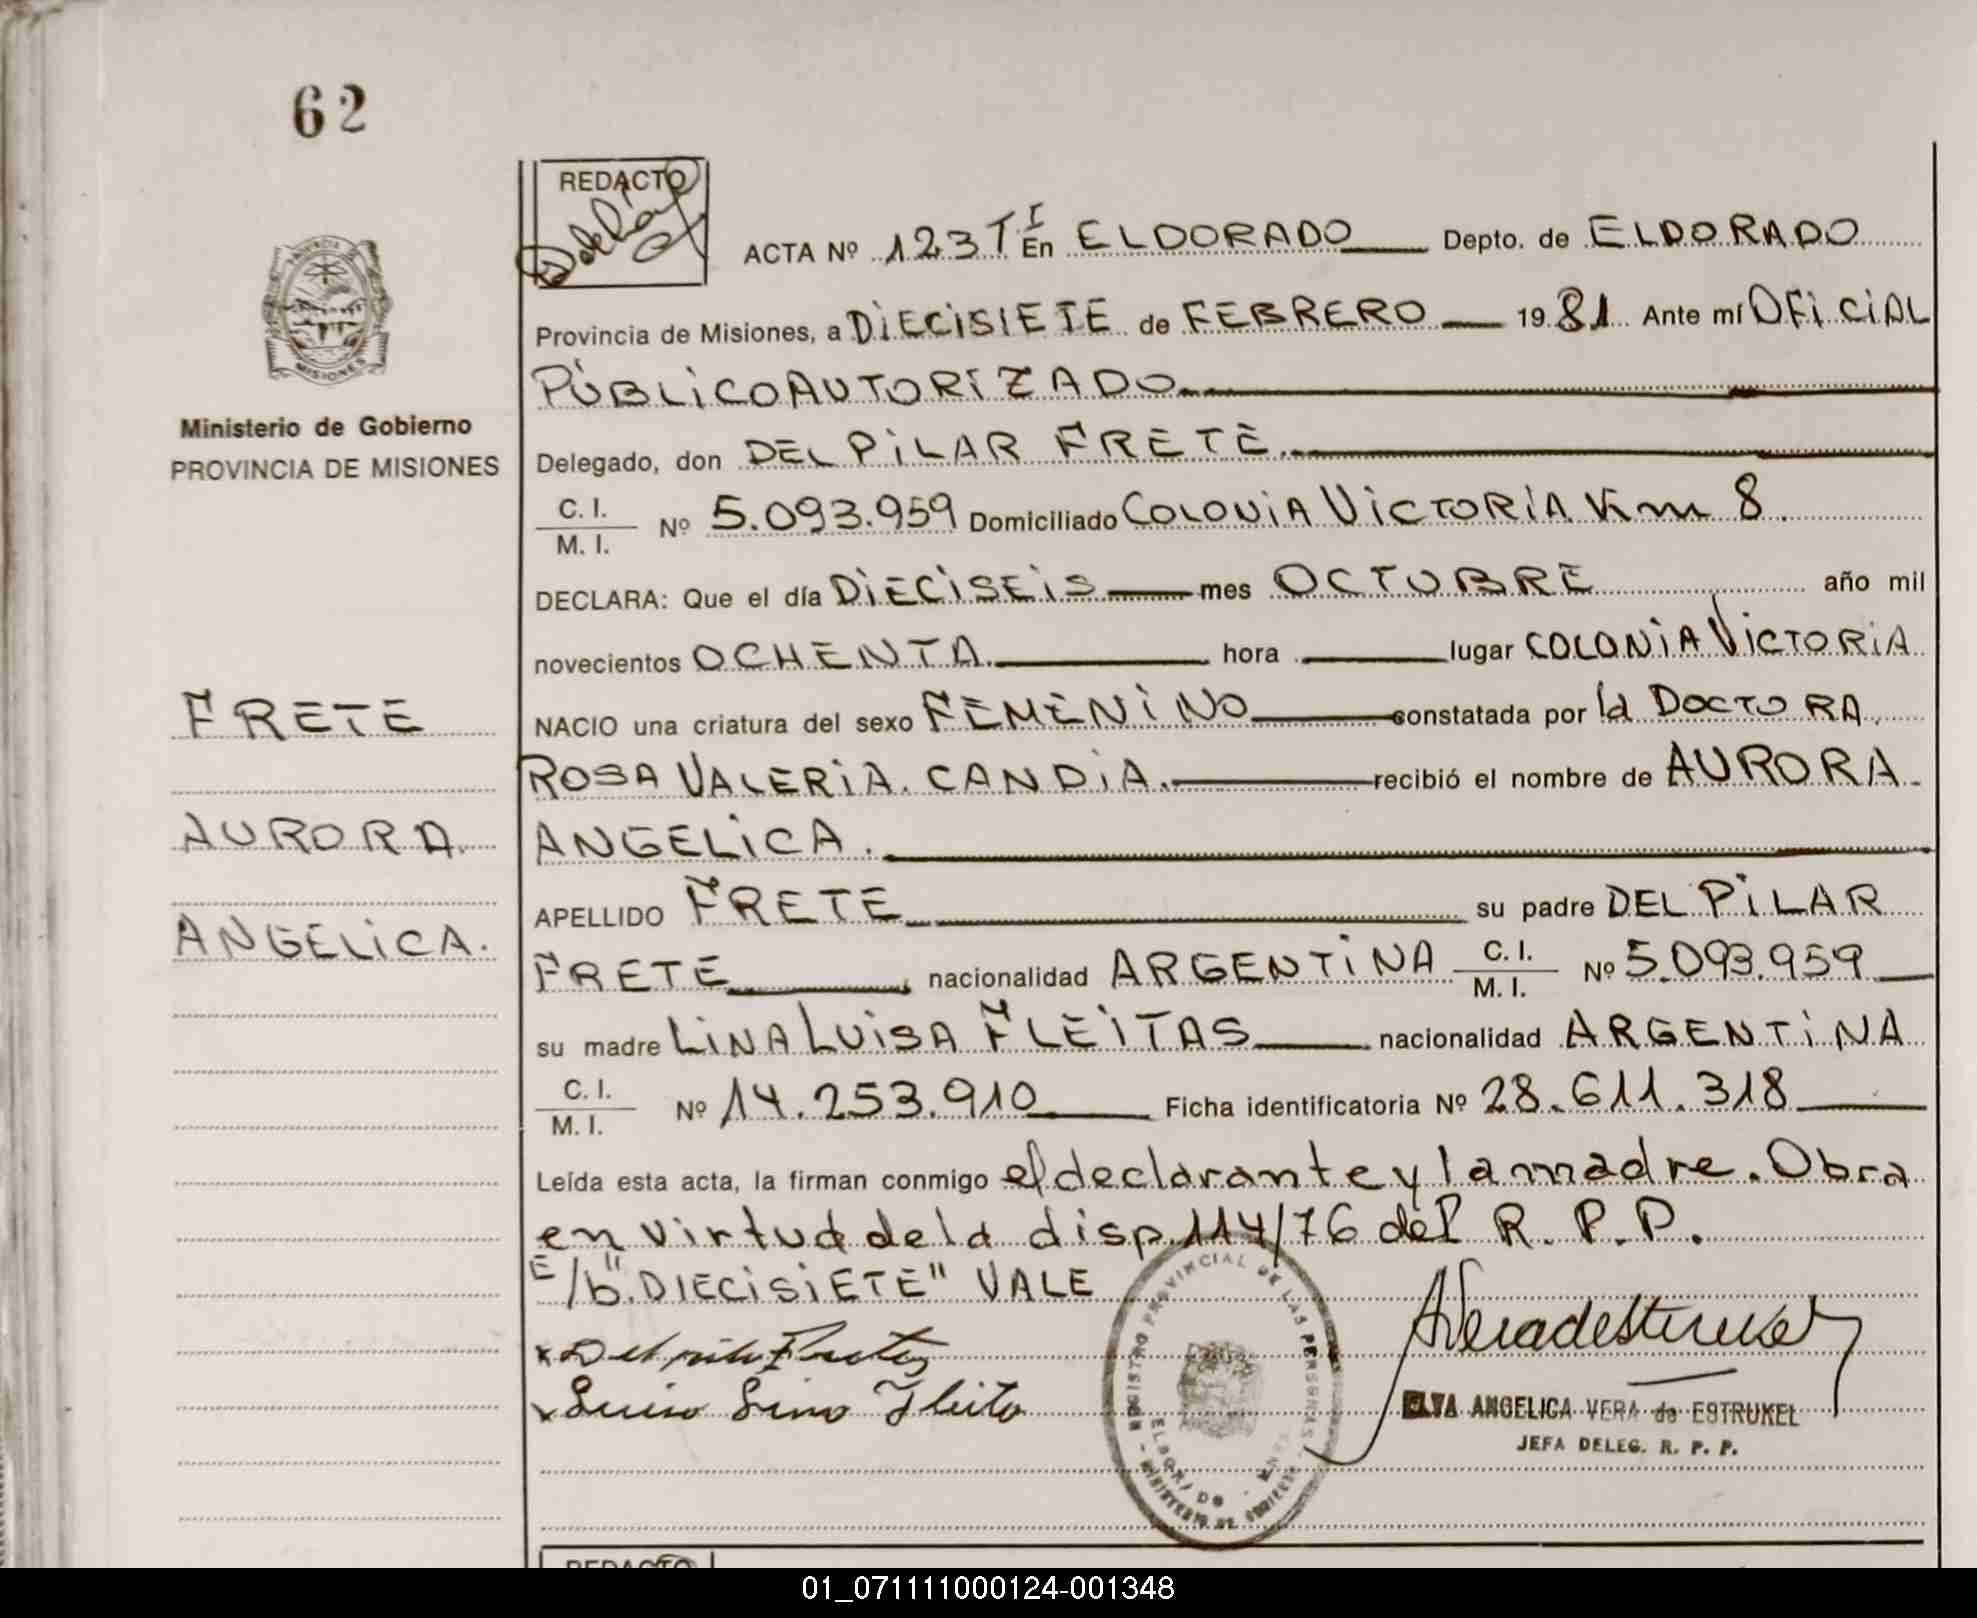 62
REDACTO
ACTA Nº 123 T I En ELDORADO Depto. de ELDORADO
Provincia de Misiones, a DIECISIETE de FEBRERO 1981 Ante mí OFICIAL
PÚBLICO AUTORIZADO
Delegado, don DEL PILAR FRETE
C. I. / M. I. Nº 5.093.959 Domiciliado COLONIA VICTORIA Km 8
DECLARA: Que el día DIECISEIS mes OCTUBRE año mil
novecientos OCHENTA hora lugar COLONIA VICTORIA
NACIO una criatura del sexo FEMENINO constatada por la DOCTORA
ROSA VALERIA CANDIA. recibió el nombre de AURORA
ANGELICA.
APELLIDO FRETE su padre DEL PILAR
FRETE, nacionalidad ARGENTINA C. I. / M. I. Nº 5.093.959
su madre LINA LUISA FLEITAS nacionalidad ARGENTINA
C. I. / M. I. Nº 14.253.910 Ficha identificatoria Nº 28.611.318
Leída esta acta, la firman conmigo el declarante y la madre. Obra
en virtud de la disp. 114/76 del R. P. P.
E/b "DIECISIETE" VALE
Luisa Lina Fleita
ELVA ANGELICA VERA de ESTRUKEL
JEFA DELEG. R. P. P.
REGISTRO PROVINCIAL DE LAS PERSONAS
ELDORADO
MINISTERIO DE GOBIERNO
PROVINCIA
MISIONES
Ministerio de Gobierno
PROVINCIA DE MISIONES
FRETE
AURORA
ANGELICA.
REDACTO
01_071111000124-001348